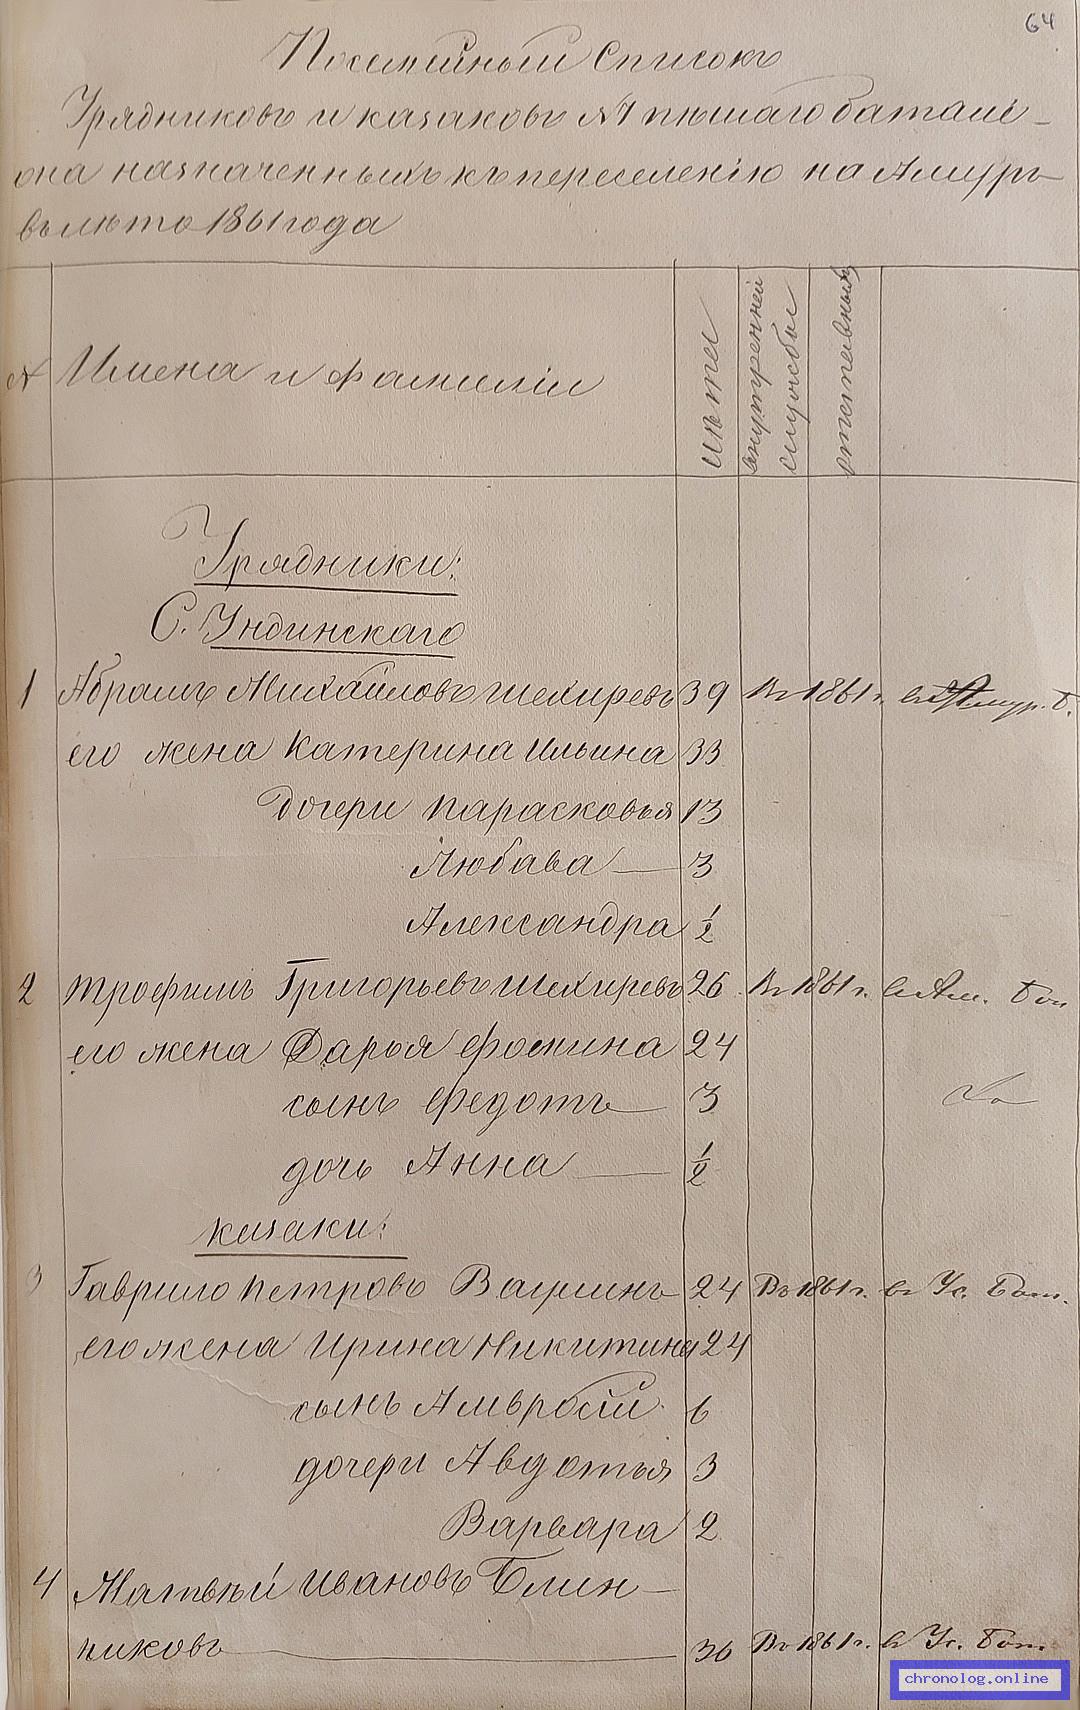 64
Посемейный Списокъ
Урядниковъ и казаковъ №7 пѣшаго баталі-
она назначенныхъ къ переселенію на Амуръ
въ лѣто 1861 года
№ Имена и фамиліи лѣты внутренней службы отставныхъ
Урядники:
С. Ундинскаго
1 Абрамъ Михайловъ Шехиревъ 39 Въ 1861 г. въ Амур. Б.
его жена Катерина Ильина 33
дочери Парасковья 13
Любава 3
Александра 1/2
2 Трофимъ Григорьевъ Шехиревъ 26 Въ 1861 г. въ Ам. Бат
его жена Дарья Фомина 24
сынъ Федотъ 3
дочь Анна 1/2
казаки:
3 Гаврило Петровъ 24 Въ 1861 г. въ Ус. Бат.
его жена Ирина Никитина 24
сынъ Амвросій 6
дочери Авдотья 3
Варвара 2
4 Матвѣй Ивановъ Блин-
никовъ 36 Въ 1861 г. в Ус. Бат.
chronolog.online